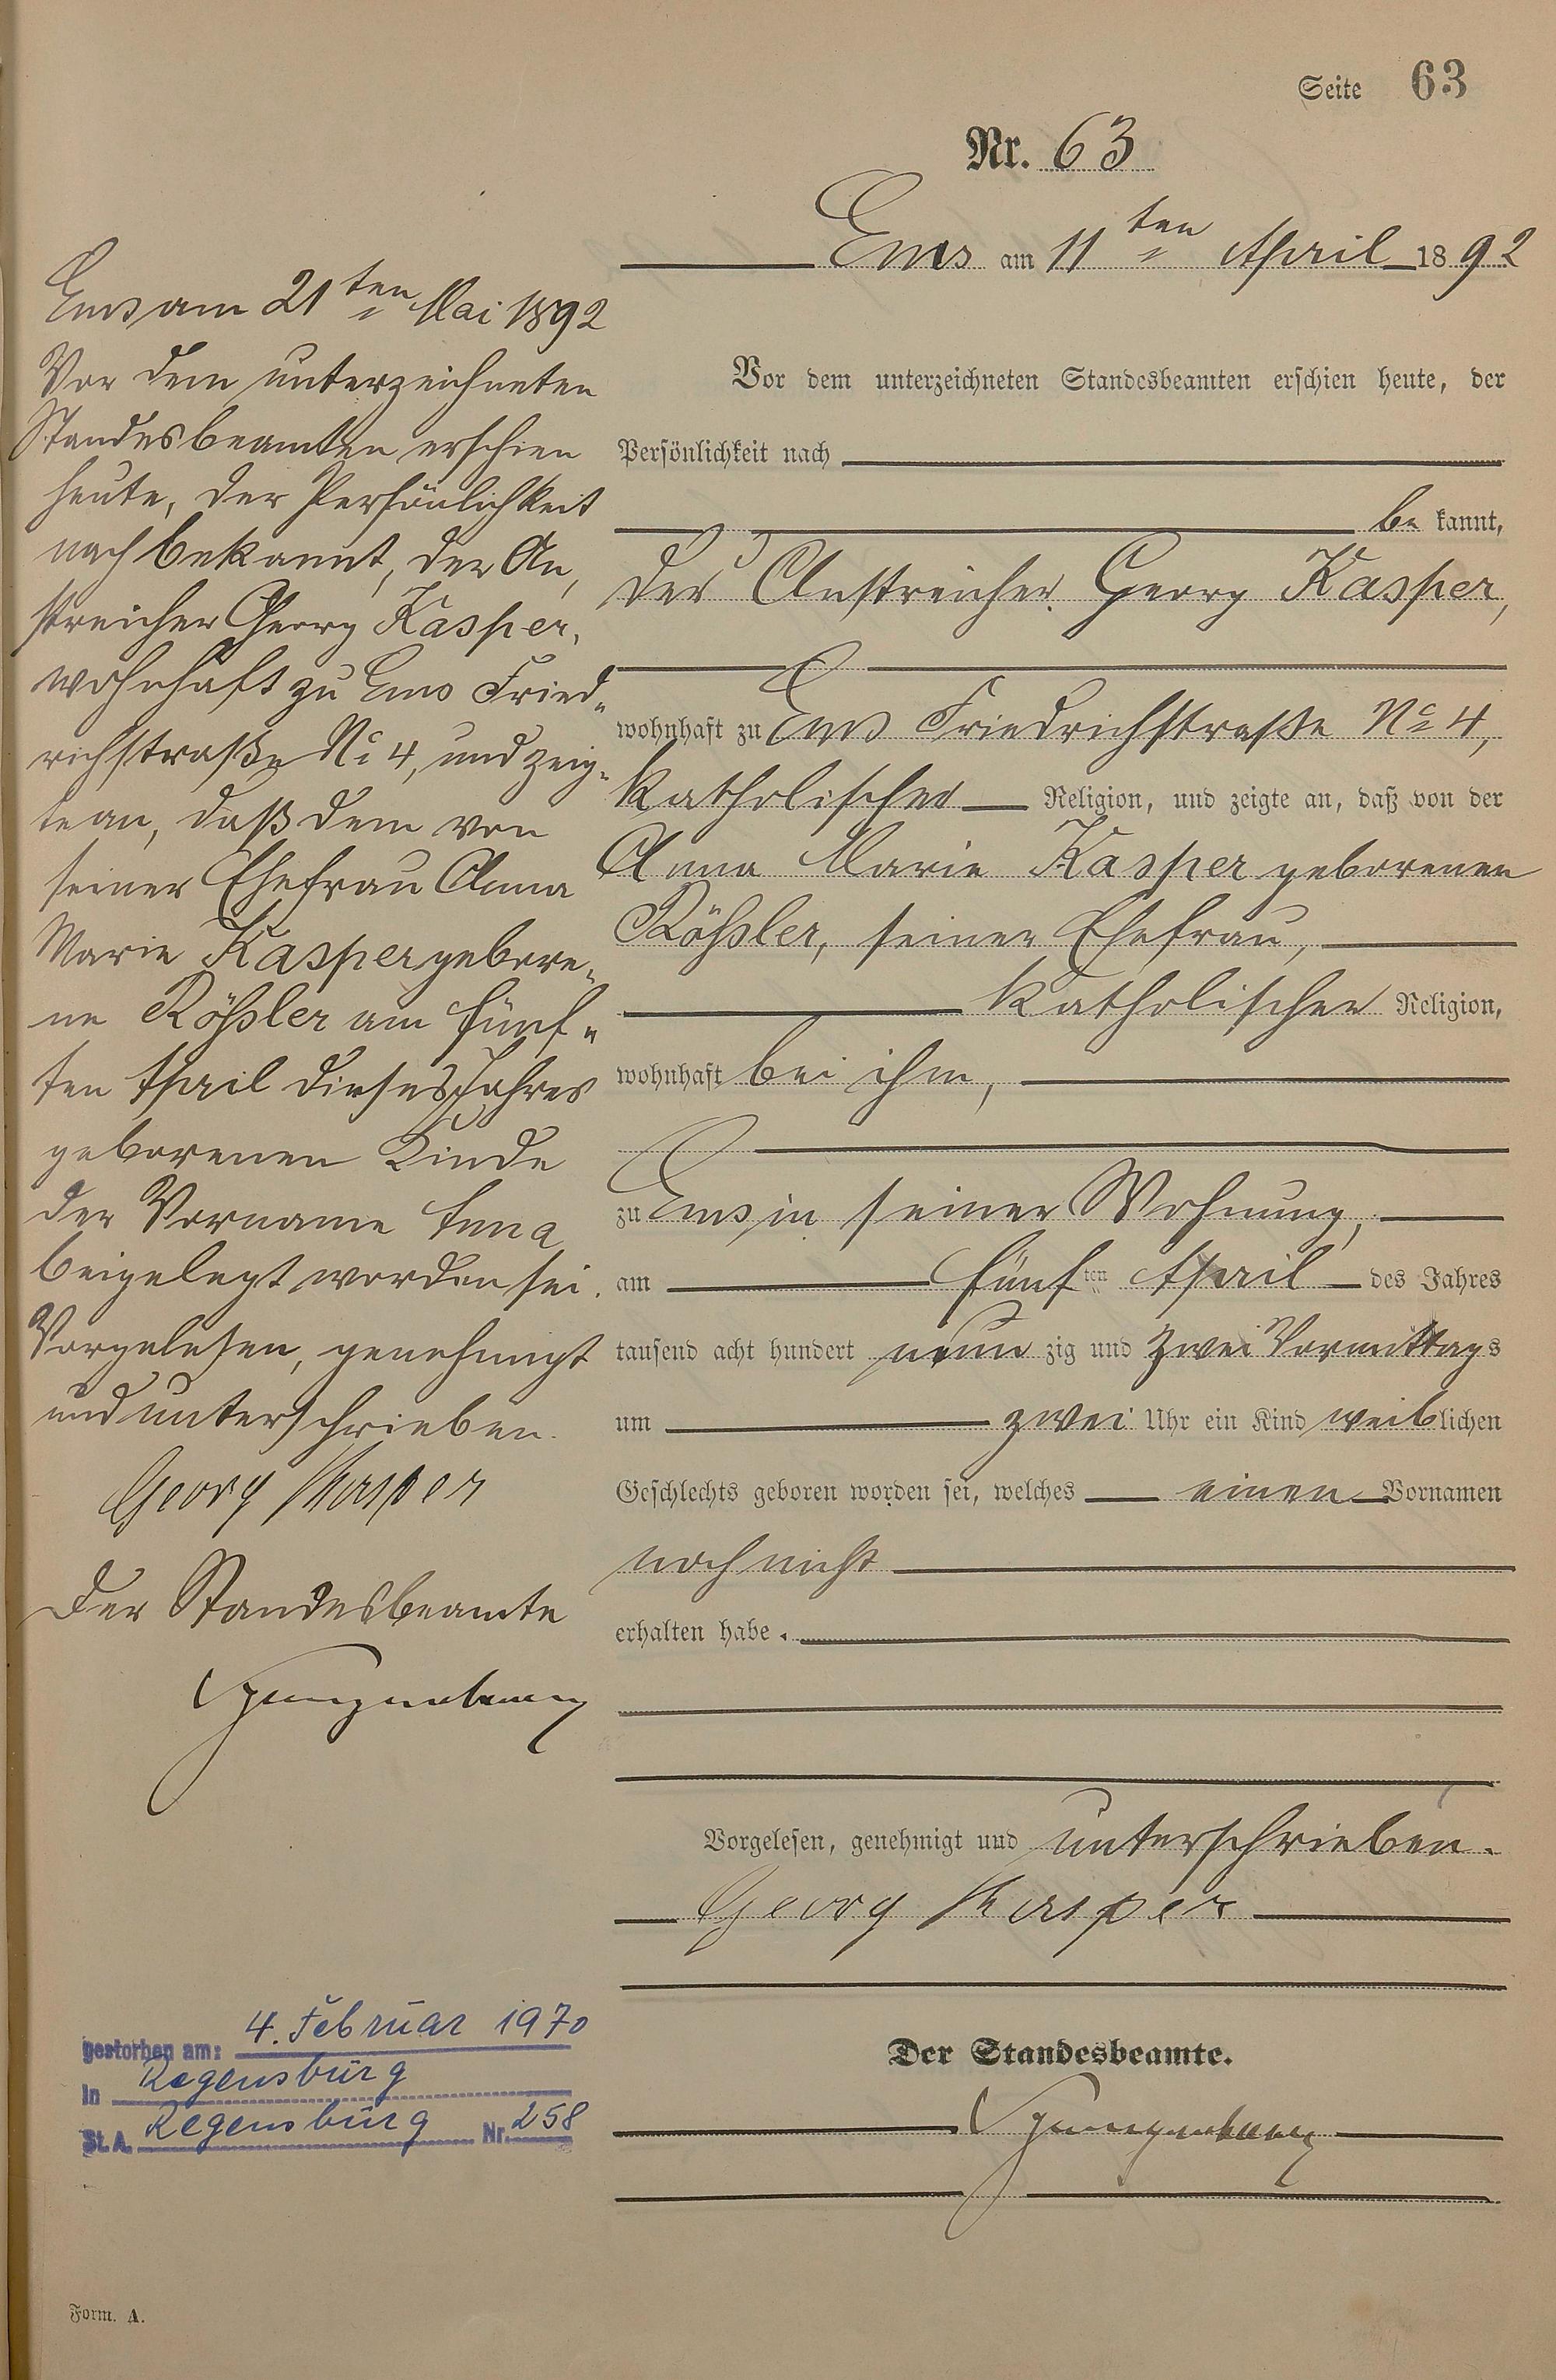 Seite 63
Nr. 63
Ems am 11ten April 1892
Vor dem unterzeichneten Standesbeamten erschien heute, der
Persönlichkeit nach
be kannt,
der Anstreicher Georg Kasper,
wohnhaft zu Ems Friedrichstraße No 4,
katholischer Religion, und zeigte an, daß von der
Anna Marie Kasper geborenen
Rößler, seiner Ehefrau,
katholischer Religion,
wohnhaft bei ihm,
zu Ems in seiner Wohnung,
am fünften April des Jahres
tausend acht hundert neun zig und zwei Vormittags
um zwei Uhr ein Kind weiblichen
Geschlechts geboren worden sei, welches einen Vornamen
noch nicht
erhalten habe.
Vorgelesen, genehmigt und unterschrieben.
Georg Kasper
Der Standesbeamte.
Ems am 21ten Mai 1892
Vor dem unterzeichneten
Standesbeamten erschien
heute, der Persönlichkeit
nach bekannt, der An-
streicher Georg Kasper,
wohnhaft zu Ems Fried-
richstraße No 4, und zeig-
te an, daß dem von
seiner Ehefrau Anna
Marie Kasper gebore-
ne Rößler am fünf-
ten April dieses Jahres
geborenen Kinde
der Vorname Anna
beigelegt worden sei.
Vorgelesen, genehmigt
und unterschrieben.
Georg Kasper
Der Standesbeamte
gestorben am: 4. Februar 1970
in Regensburg
St. A. Regensburg Nr. 258
Form. A.